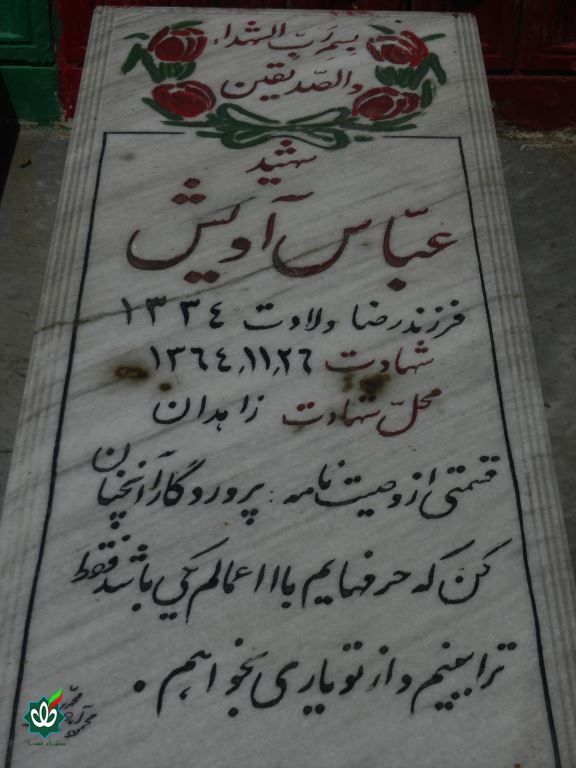 بسم رب الشهداء
والصدیقین
شهید
عباس آویش
فرزند رضا ولادت ۱۳۳٤
شهادت ۱۳٦٤٫۱۱٫۲٦
محلّ شهادت زاهدان
قسمتی از وصیت نامه : پروردگارا آنچنان
کن که حرفهایم با اعمالم یکی باشد فقط
ترا بینم و از تو یاری بخواهم .